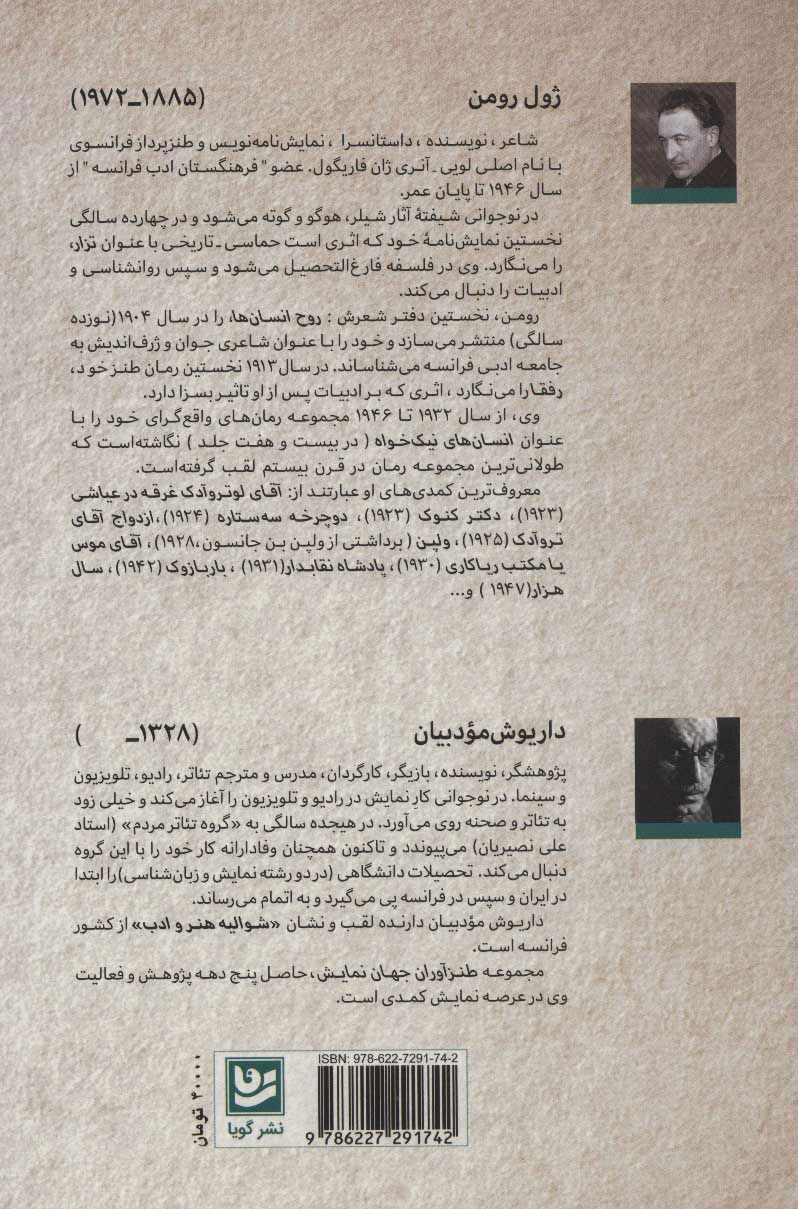 ژول رومن (۱۸۸۵ـ۱۹۷۲)
شاعر، نویسنده، داستانسرا، نمایش‌نامه‌نویس و طنزپرداز فرانسوی
با نام اصلی لویی ـ آنری ژان فاریگول. عضو "فرهنگستان ادب فرانسه" از
سال ۱۹۴۶ تا پایان عمر.
در نوجوانی شیفتهٔ آثار شیلر، هوگو و گوته می‌شود و در چهارده سالگی
نخستین نمایش‌نامهٔ خود که اثری است حماسی ـ تاریخی با عنوان تزار،
را می‌نگارد. وی در فلسفه فارغ‌التحصیل می‌شود و سپس روانشناسی و
ادبیات را دنبال می‌کند.
رومن، نخستین دفتر شعرش : روح انسان‌ها، را در سال ۱۹۰۴(نوزده
سالگی) منتشر می‌سازد و خود را با عنوان شاعری جوان و ژرف‌اندیش به
جامعه ادبی فرانسه می‌شناساند. در سال۱۹۱۳ نخستین رمان طنز خود،
رفقا را می‌نگارد ، اثری که بر ادبیات پس از او تاثیر بسزا دارد.
وی، از سال ۱۹۳۲ تا ۱۹۴۶ مجموعه رمان‌های واقع‌گرای خود را با
عنوان انسان‌های نیک‌خواه ( در بیست و هفت جلد ) نگاشته‌است که
طولانی‌ترین مجموعه رمان در قرن بیستم لقب گرفته‌است.
معروف‌ترین کمدی‌های او عبارتند از: آقای لوتروآدک غرقه در عیاشی
(۱۹۲۳)، دکتر کنوک (۱۹۲۳)، دوچرخه سه‌ستاره (۱۹۲۴)،ازدواج آقای
تروآدک (۱۹۲۵)، ولپن ( برداشتی از ولپن بن جانسون،۱۹۲۸)، آقای موس
یا مکتب ریاکاری (۱۹۳۰)، پادشاه نقابدار(۱۹۳۱) ، باربازوک (۱۹۴۲)، سال
هزار(۱۹۴۷ ) و...
داریوش مؤدبیان (۱۳۲۸ـ )
پژوهشگر، نویسنده، بازیگر، کارگردان، مدرس و مترجم تئاتر، رادیو، تلویزیون
و سینما. در نوجوانی کارِ نمایش در رادیو و تلویزیون را آغاز می‌کند و خیلی زود
به تئاتر و صحنه روی می‌آورد. در هیجده سالگی به «گروه تئاتر مردم» (استاد
علی نصیریان) می‌پیوندد و تاکنون همچنان وفادارانه کار خود را با این گروه
دنبال می‌کند. تحصیلات دانشگاهی (در دو رشته نمایش و زبان‌شناسی)را ابتدا
در ایران و سپس در فرانسه پی می‌گیرد و به اتمام می‌رساند.
داریوش مؤدبیان دارنده لقب و نشان «شوالیه هنر و ادب» از کشور
فرانسه است.
مجموعه طنزآوران جهان نمایش، حاصل پنج دهه پژوهش و فعالیت
وی در عرصه نمایش کمدی است.
ISBN: 978-622-7291-74-2
9 786227 291742
نشر گویا
۴۰۰۰۰ تومان